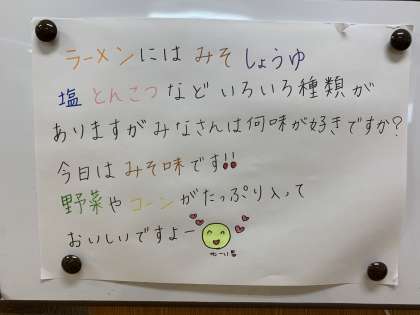 ラーメンには みそ しょうゆ
塩 とんこつ など いろいろ種類が
ありますが みなさんは 何味が 好きですか?
今日は みそ味です!!
野菜や コーンが たっぷり入って
おいしいですよー